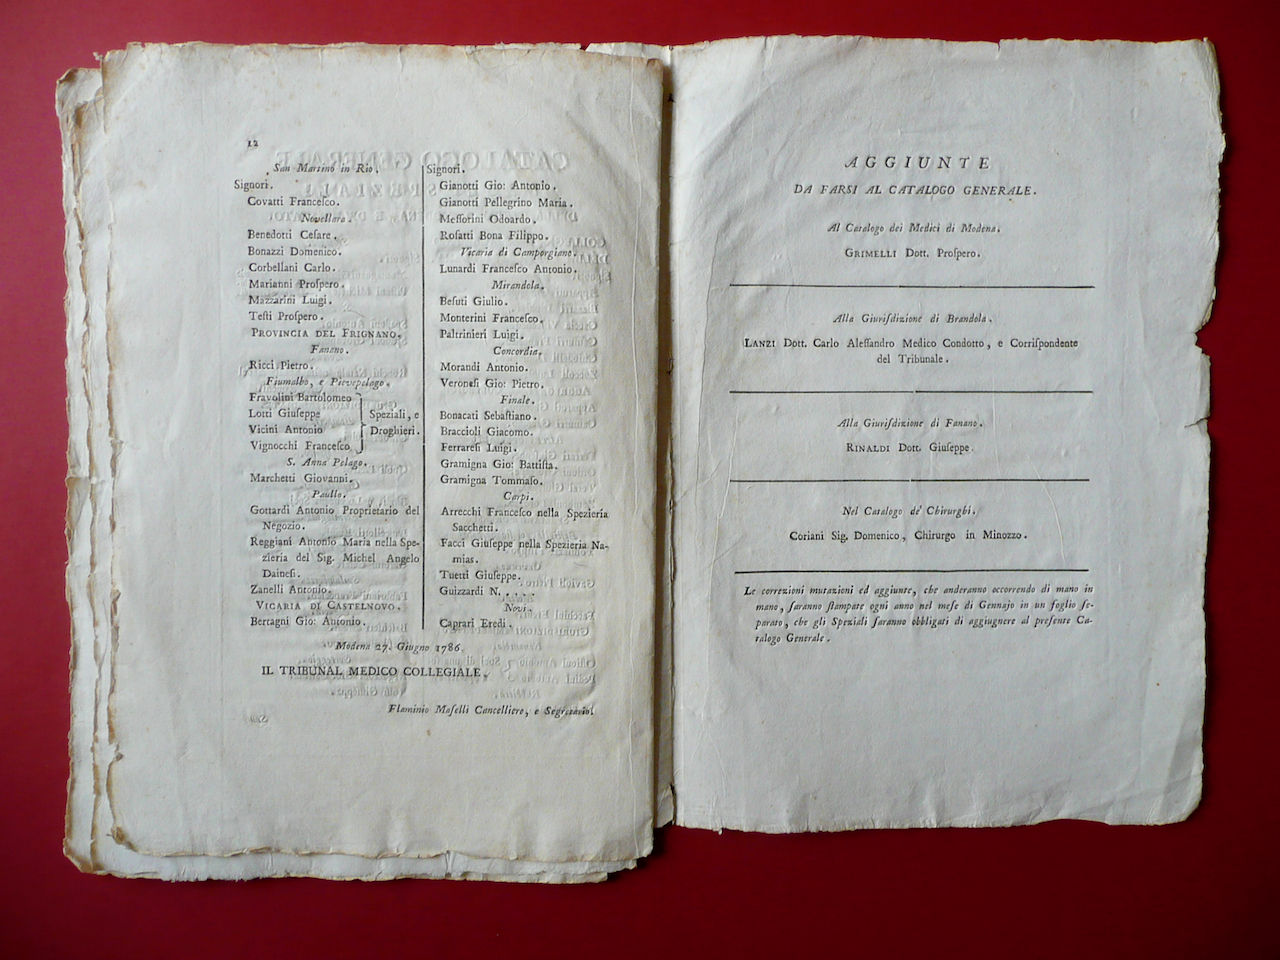 12
San Martino in Rio.
Signori.
Covatti Franceſco.
Novellara.
Benedotti Ceſare.
Bonazzi Domenico.
Corbellani Carlo.
Marianni Proſpero.
Mazzarini Luigi.
Teſti Proſpero.
PROVINCIA DEL FRIGNANO.
Fanano.
Ricci Pietro.
Fiumalbo, e Pievepelago.
Fravolini Bartolomeo
Lotti Giuſeppe
Vicini Antonio
Vignocchi Franceſco
Speziali, e
Droghieri.
S. Anna Pelago.
Marchetti Giovanni.
Paullo.
Gottardi Antonio Proprietario del
Negozio.
Reggiani Antonio Maria nella Spe-
zieria del Sig. Michel Angelo
Daineſi.
Zanelli Antonio.
VICARIA DI CASTELNOVO.
Bertagni Gio: Antonio.
Signori.
Gianotti Gio: Antonio.
Gianotti Pellegrino Maria.
Meſſorini Odoardo.
Roſatti Bona Filippo.
Vicaria di Camporgiano.
Lunardi Franceſco Antonio.
Mirandola.
Beſuti Giulio.
Monterini Franceſco.
Paltrinieri Luigi.
Concordia.
Morandi Antonio.
Veroneſi Gio: Pietro.
Finale.
Bonacati Sebaſtiano.
Braccioli Giacomo.
Ferrareſi Luigi.
Gramigna Gio: Battiſta.
Gramigna Tommaſo.
Carpi.
Arrecchi Franceſco nella Spezieria
Sacchetti.
Facci Giuſeppe nella Spezieria Na-
mias.
Tuetti Giuſeppe.
Guizzardi N. . . . .
Novi.
Caprari Eredi.
Modena 27. Giugno 1786.
IL TRIBUNAL MEDICO COLLEGIALE.
Flaminio Maſelli Cancelliere, e Segretario.
AGGIUNTE
DA FARSI AL CATALOGO GENERALE.
Al Catalogo dei Medici di Modena.
GRIMELLI Dott. Proſpero.
Alla Giuriſdizione di Brandola.
LANZI Dott. Carlo Aleſſandro Medico Condotto, e Corriſpondente
del Tribunale.
Alla Giuriſdizione di Fanano.
RINALDI Dott. Giuſeppe.
Nel Catalogo de' Chirurghi.
Coriani Sig. Domenico, Chirurgo in Minozzo.
Le correzioni mutazioni ed aggiunte, che anderanno occorrendo di mano in
mano, ſaranno ſtampate ogni anno nel meſe di Gennajo in un foglio ſe-
parato, che gli Speziali ſaranno obbligati di aggiugnere al preſente Ca-
talogo Generale.